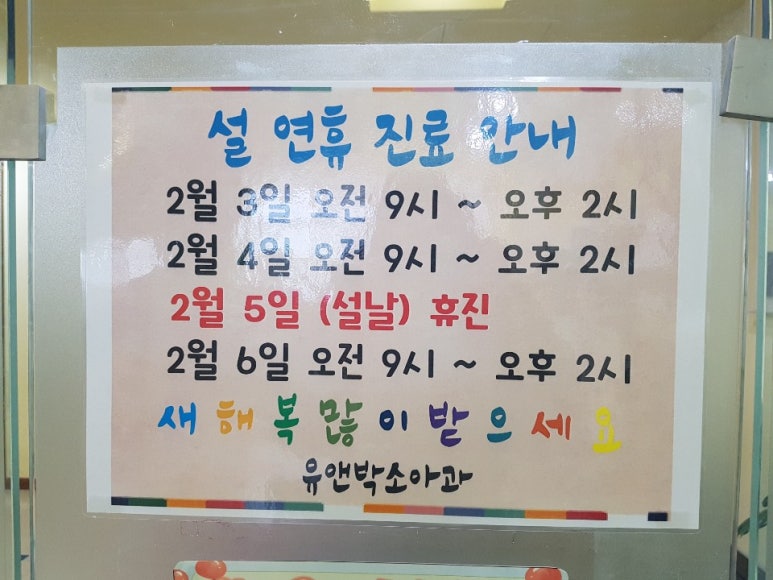 설 연휴 진료 안내
2월 3일 오전 9시 ~ 오후 2시
2월 4일 오전 9시 ~ 오후 2시
2월 5일 (설날) 휴진
2월 6일 오전 9시 ~ 오후 2시
새해복많이받으세요
유앤박소아과